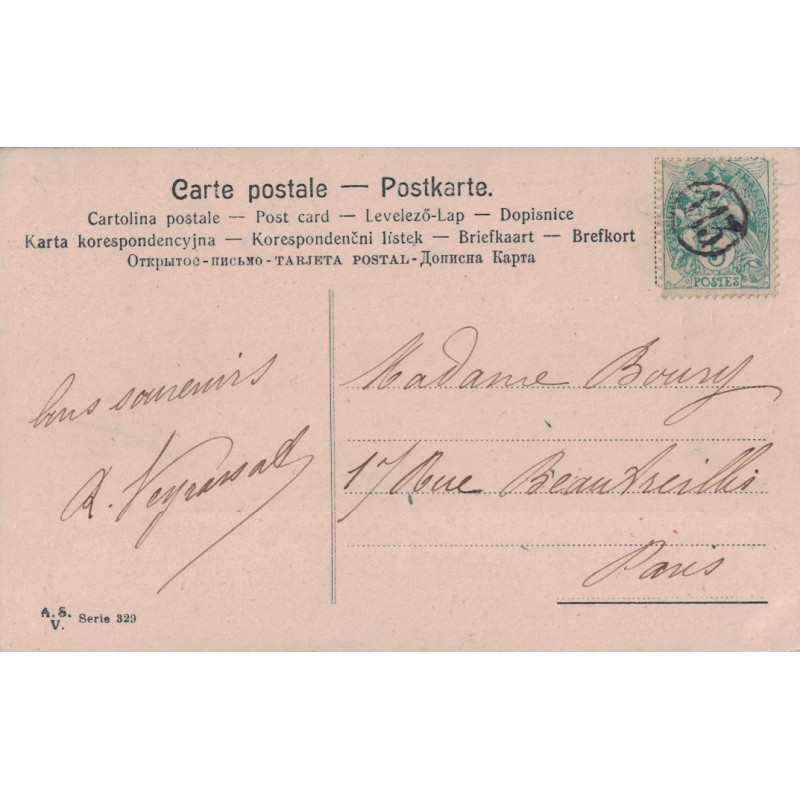 Carte postale — Postkarte.
Cartolina postale — Post card — Levelező-Lap — Dopisnice
Karta korespondencyjna — Korespondenčni lístek — Briefkaart — Brefkort
Открытое-письмо-TARJETA POSTAL-Дописна Карта
POSTES
bons souvenirs
Madame Boury
17 Rue Beautreillis
Paris
A. S.
V. Serie 329